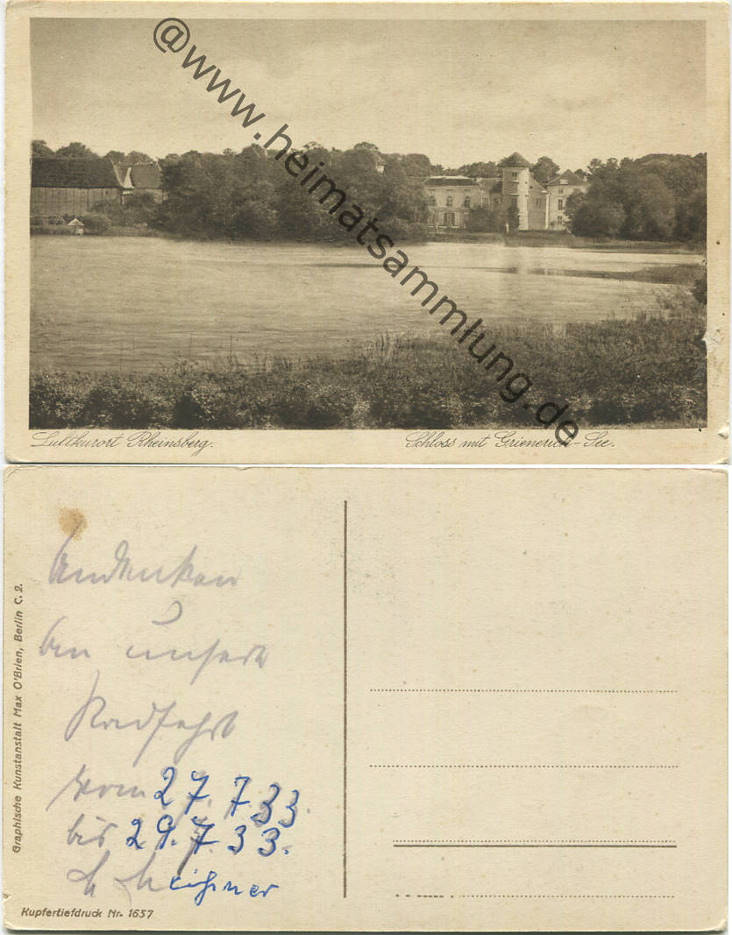 @www.heimatsammlung.de
Luftkurort Rheinsberg.
Schloss mit Grienerick-See.
Graphische Kunstanstalt Max O'Brien, Berlin C. 2.
Andenken
an unsere
Radfahrt
vom 27. 7. 33.
bis 29. 7. 33.
Kupfertiefdruck Nr. 1657